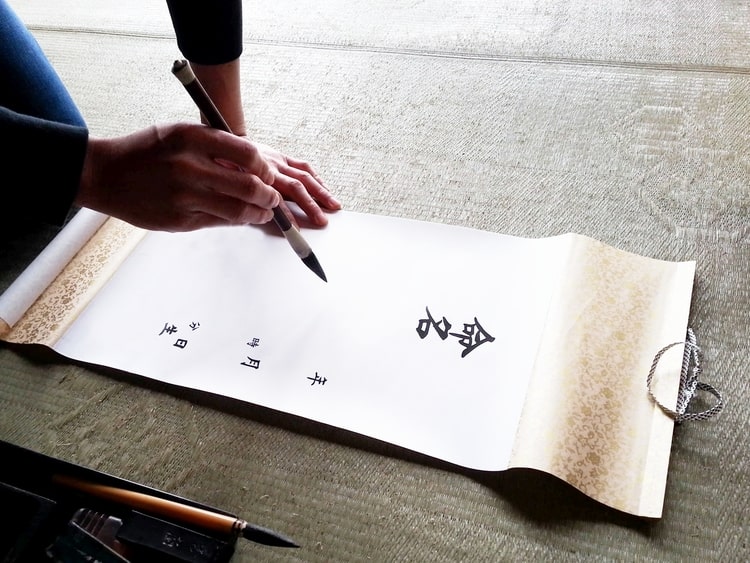 命名
年月日
時分生